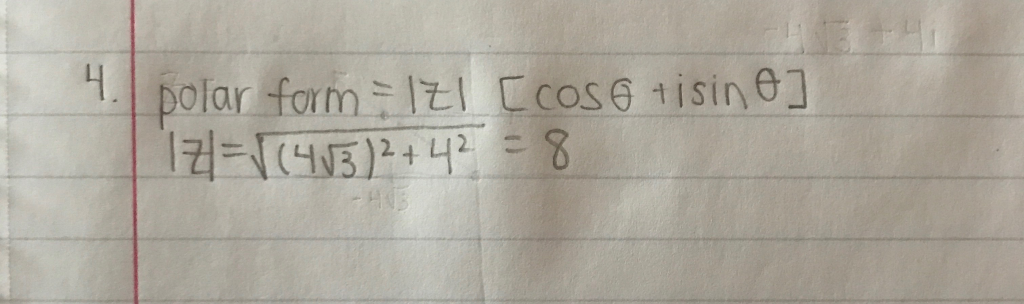 -4√3 + 4i
4. polar form = |z| [cosθ + isinθ]
|z| = √((4√3)² + 4²) = 8
-4√3